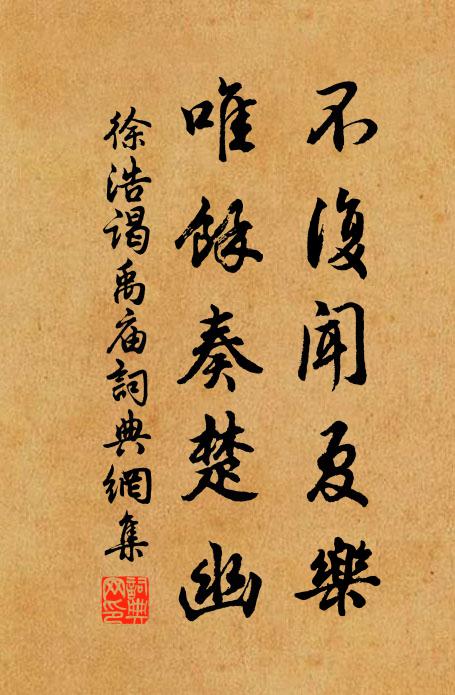 不復聞夏樂
唯餘奏楚幽
徐浩謁禹庙詞典網集
詞典
网印